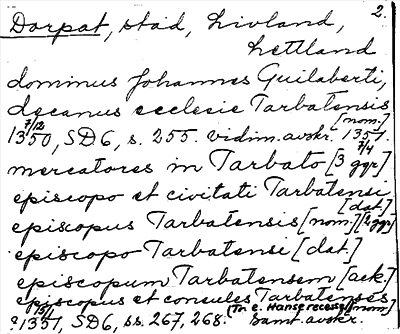 2.
Dorpat, stad, Livland,
Lettland
dominus Johannes Guilaberti,
decanus ecclesie Tarbatensis
[nom.]
7/12
1350, SD6, s. 255. vidim. avskr. 1351
7/4
mercatores in Tarbato [3 ggr]
episcopo et civitati Tarbatensi
[dat.]
episcopus Tarbatensis [nom.] [2 ggr]
episcopo Tarbatensi [dat.]
episcopum Tarbatensem [ack.]
episcopus et consules Tarbatenses
15/1 [Tr. e. Hanserecesse] [nom.]
1351, SD6, ss. 267, 268. Samt. avskr.